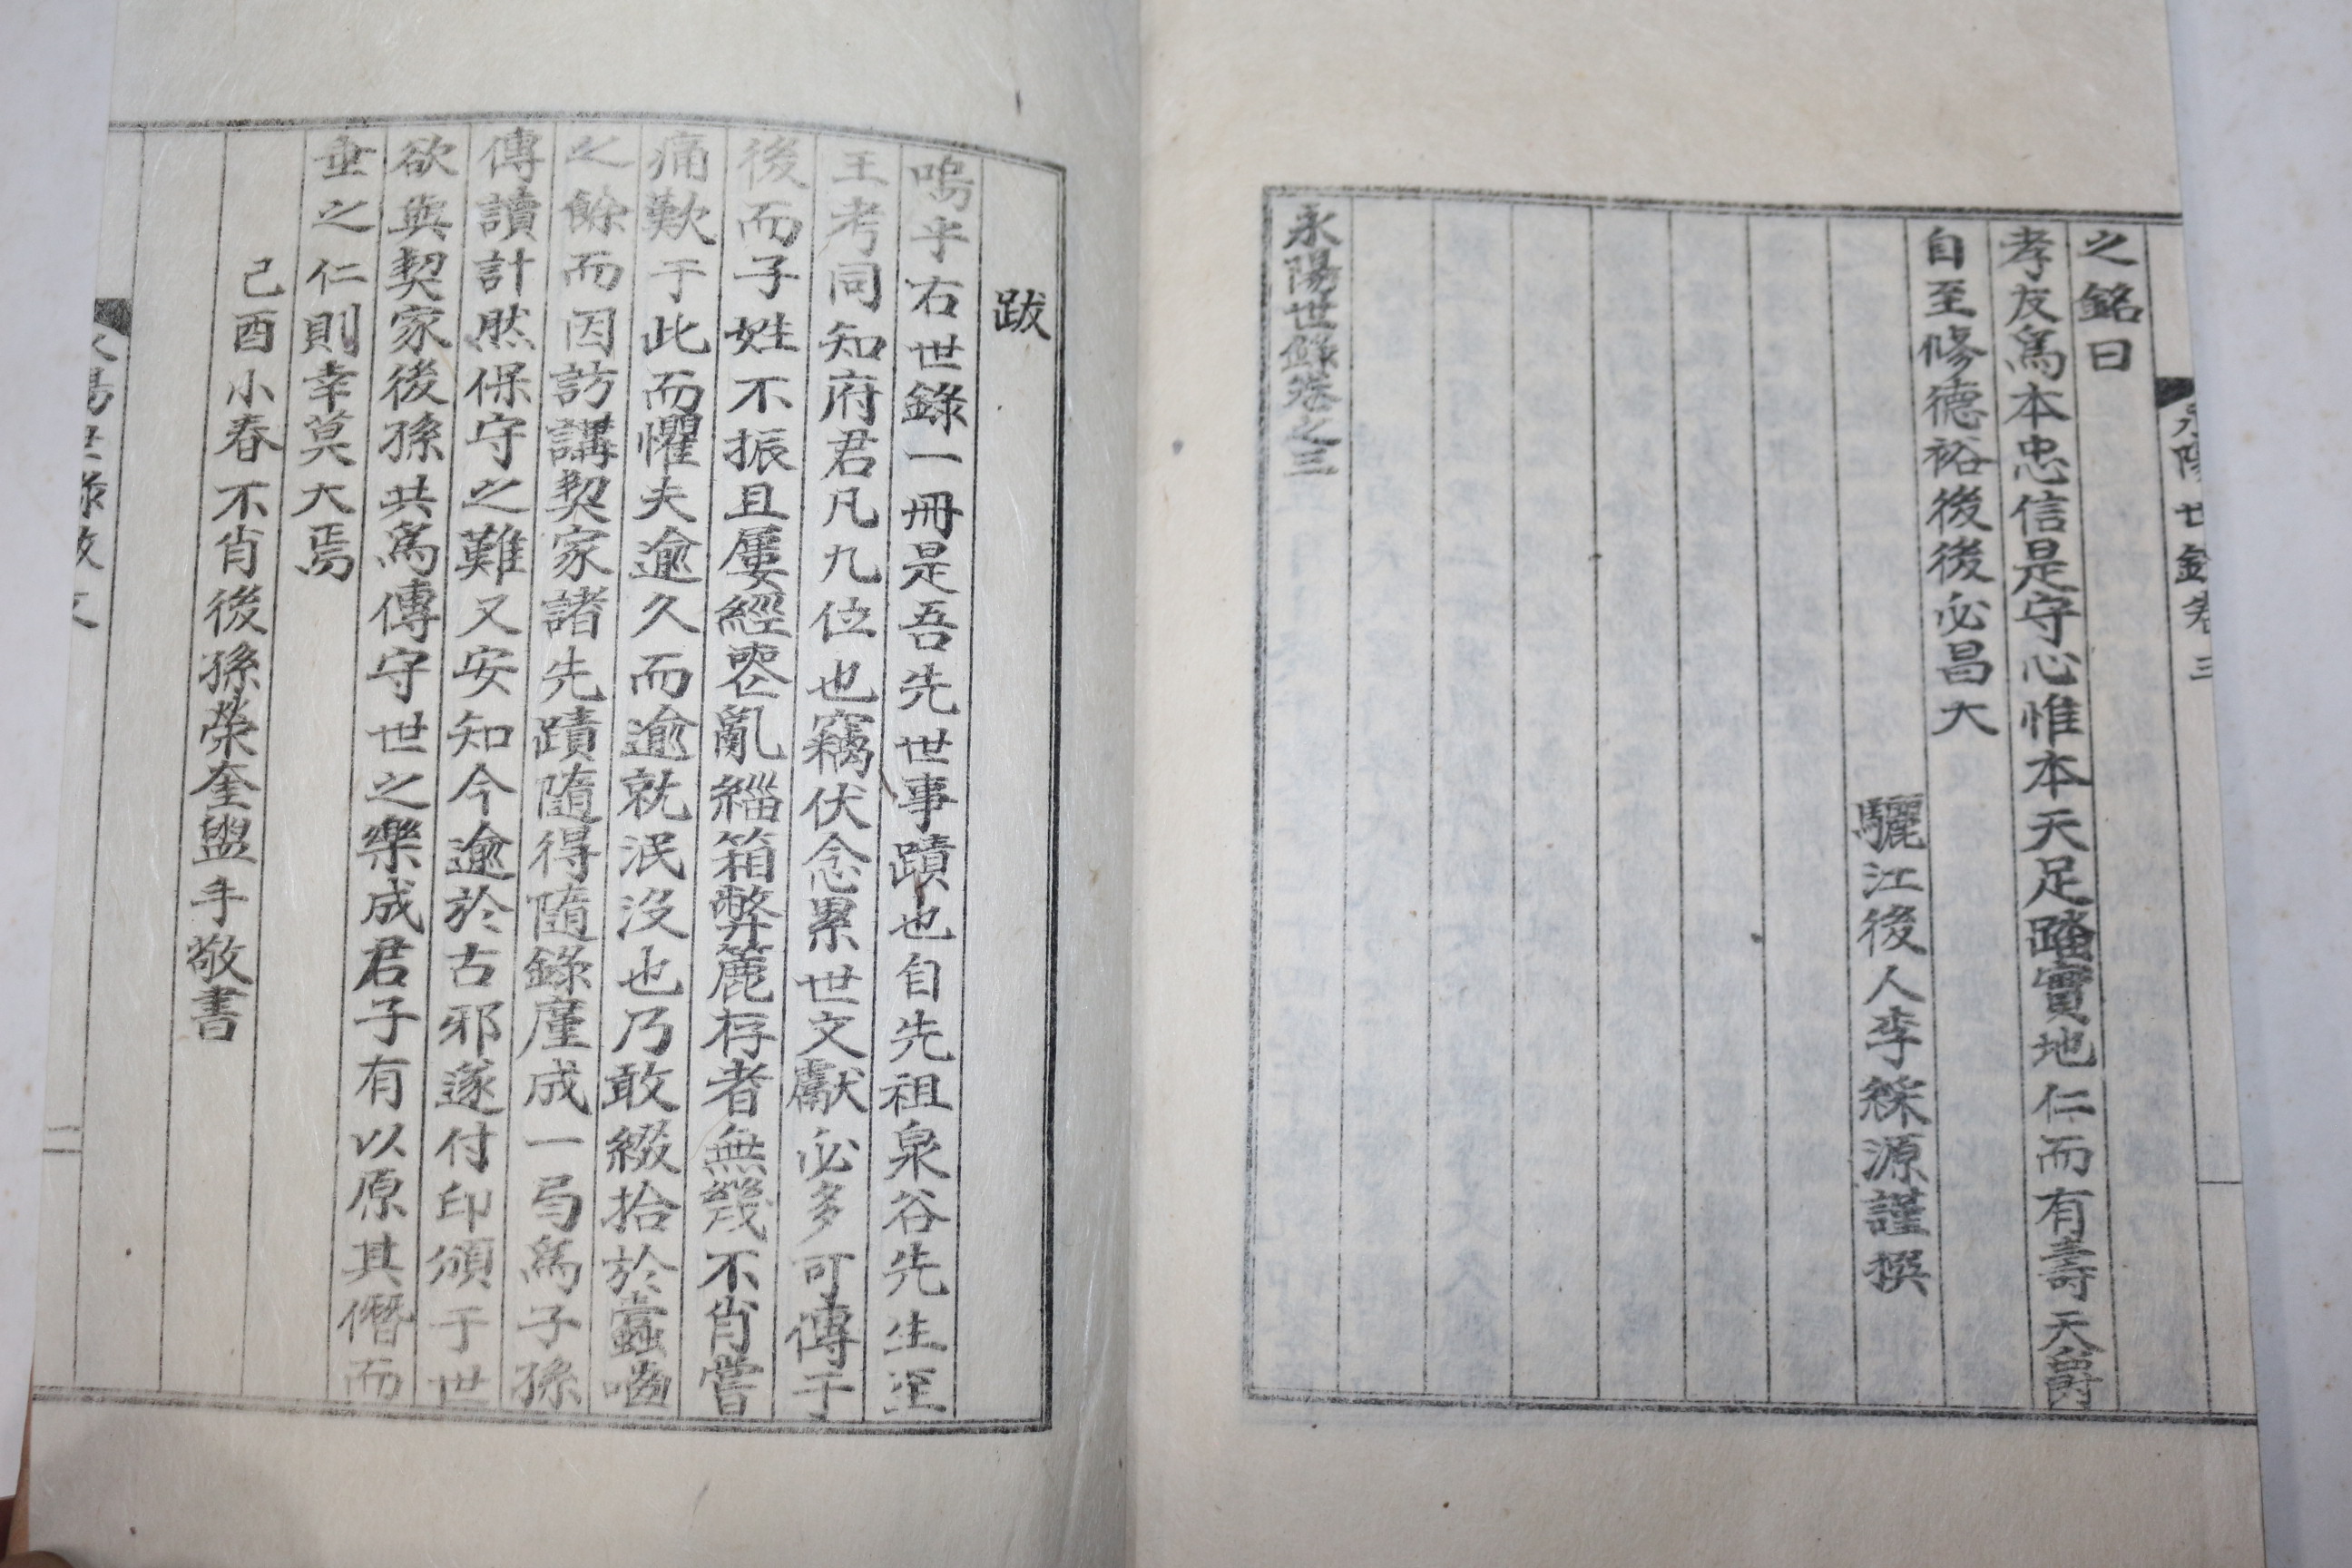 之銘曰
孝友爲本忠信是守心惟本天足踏實地仁而有壽天爵
自至修德裕後後必昌大
驪江後人李綵源謹撰
永陽世錄卷之三
永陽世錄卷三
跋
嗚乎右世錄一冊是吾先世事蹟也自先祖泉谷先生至
王考同知府君凡九位也竊伏念累世文獻必多可傳于
後而子姓不振且屢經兵亂緇箱弊簏存者無幾不肖嘗
痛歎于此而懼夫逾久而逾就泯沒也乃敢綴拾於蠹嚙
之餘而因訪講契家諸先蹟隨得隨錄廑成一局爲子孫
傳讀計然保守之難又安知今逾於古邪遂付印頒于世
欲與契家後孫共爲傳守世之樂成君子有以原其僭而
垂之仁則幸莫大焉
己酉小春不肖後孫榮奎盥手敬書